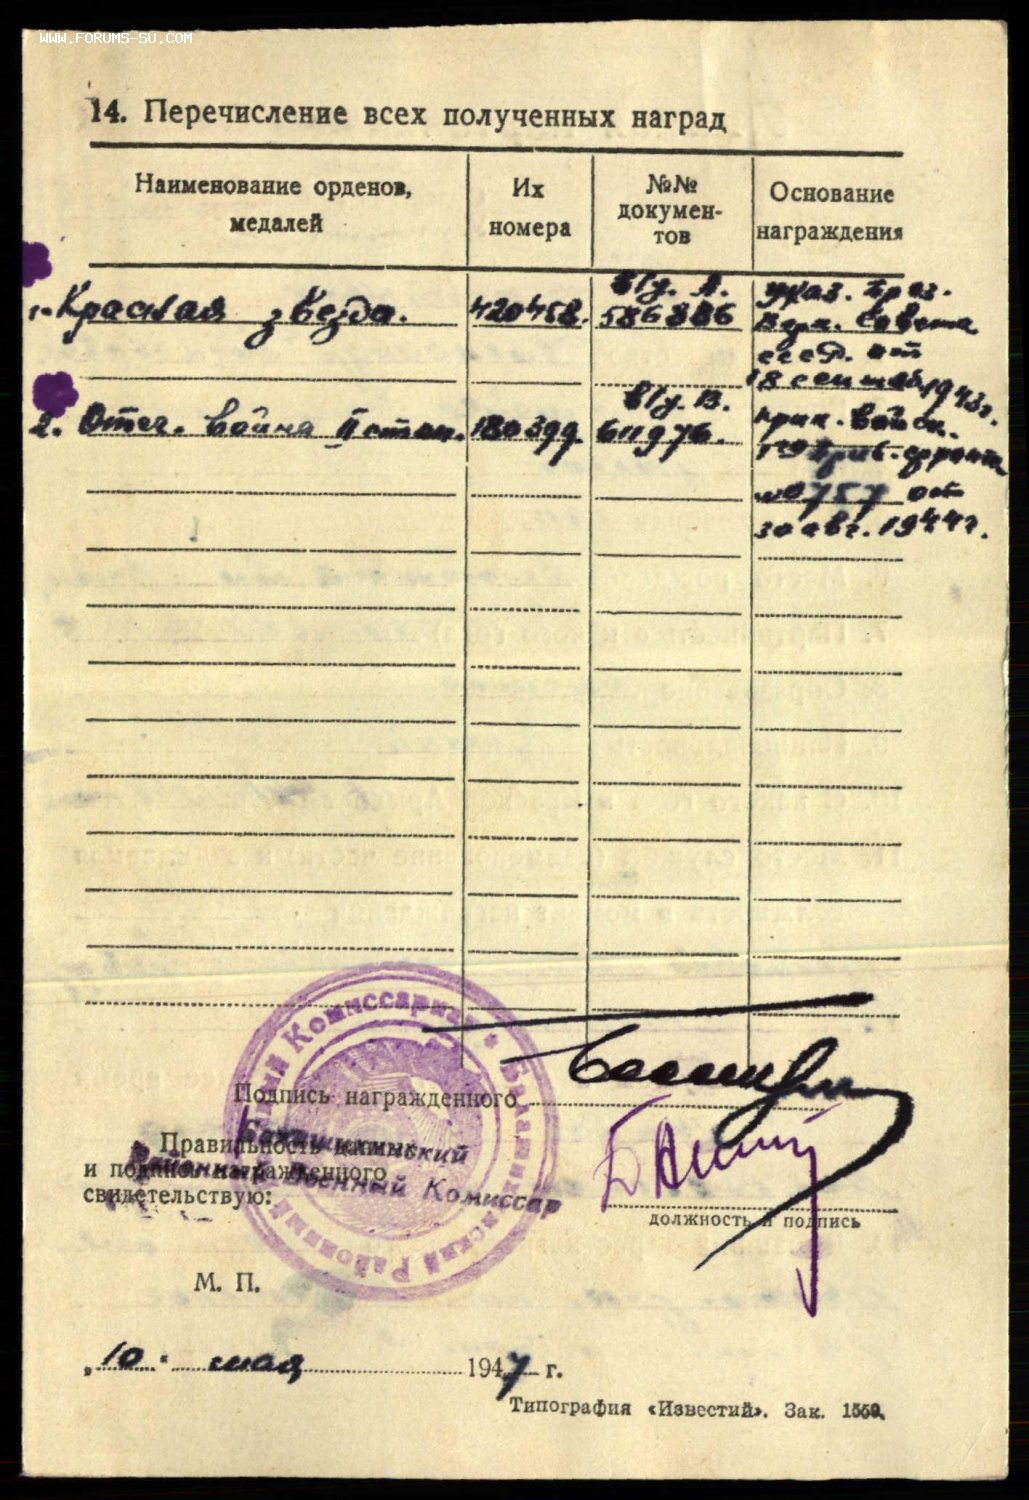 WWW.FORUMS-SU.COM
14. Перечисление всех полученных наград
Наименование орденов, медалей
Их номера
№№ докумен-
тов
Основание награждения
1. Красная звезда.
420458.
в/у. А.
586886
Указ. През.
Верх. Совета
СССР. от
18 сентяб. 1943г.
2. Отеч. война II степ.
180399.
в/у. В.
611976.
Прик. войск.
Приб. фронта
№ 0757 от
30 авг. 1944г.
Подпись награжденного
Правильность
и подпись награжденного
свидетельствую:
Балашихинский
Районный Военный Комиссар
Балашихинский Районный Военный Комиссариат
должность и подпись
М. П.
„10“ мая 1947 г.
Типография «Известий». Зак. 1559.